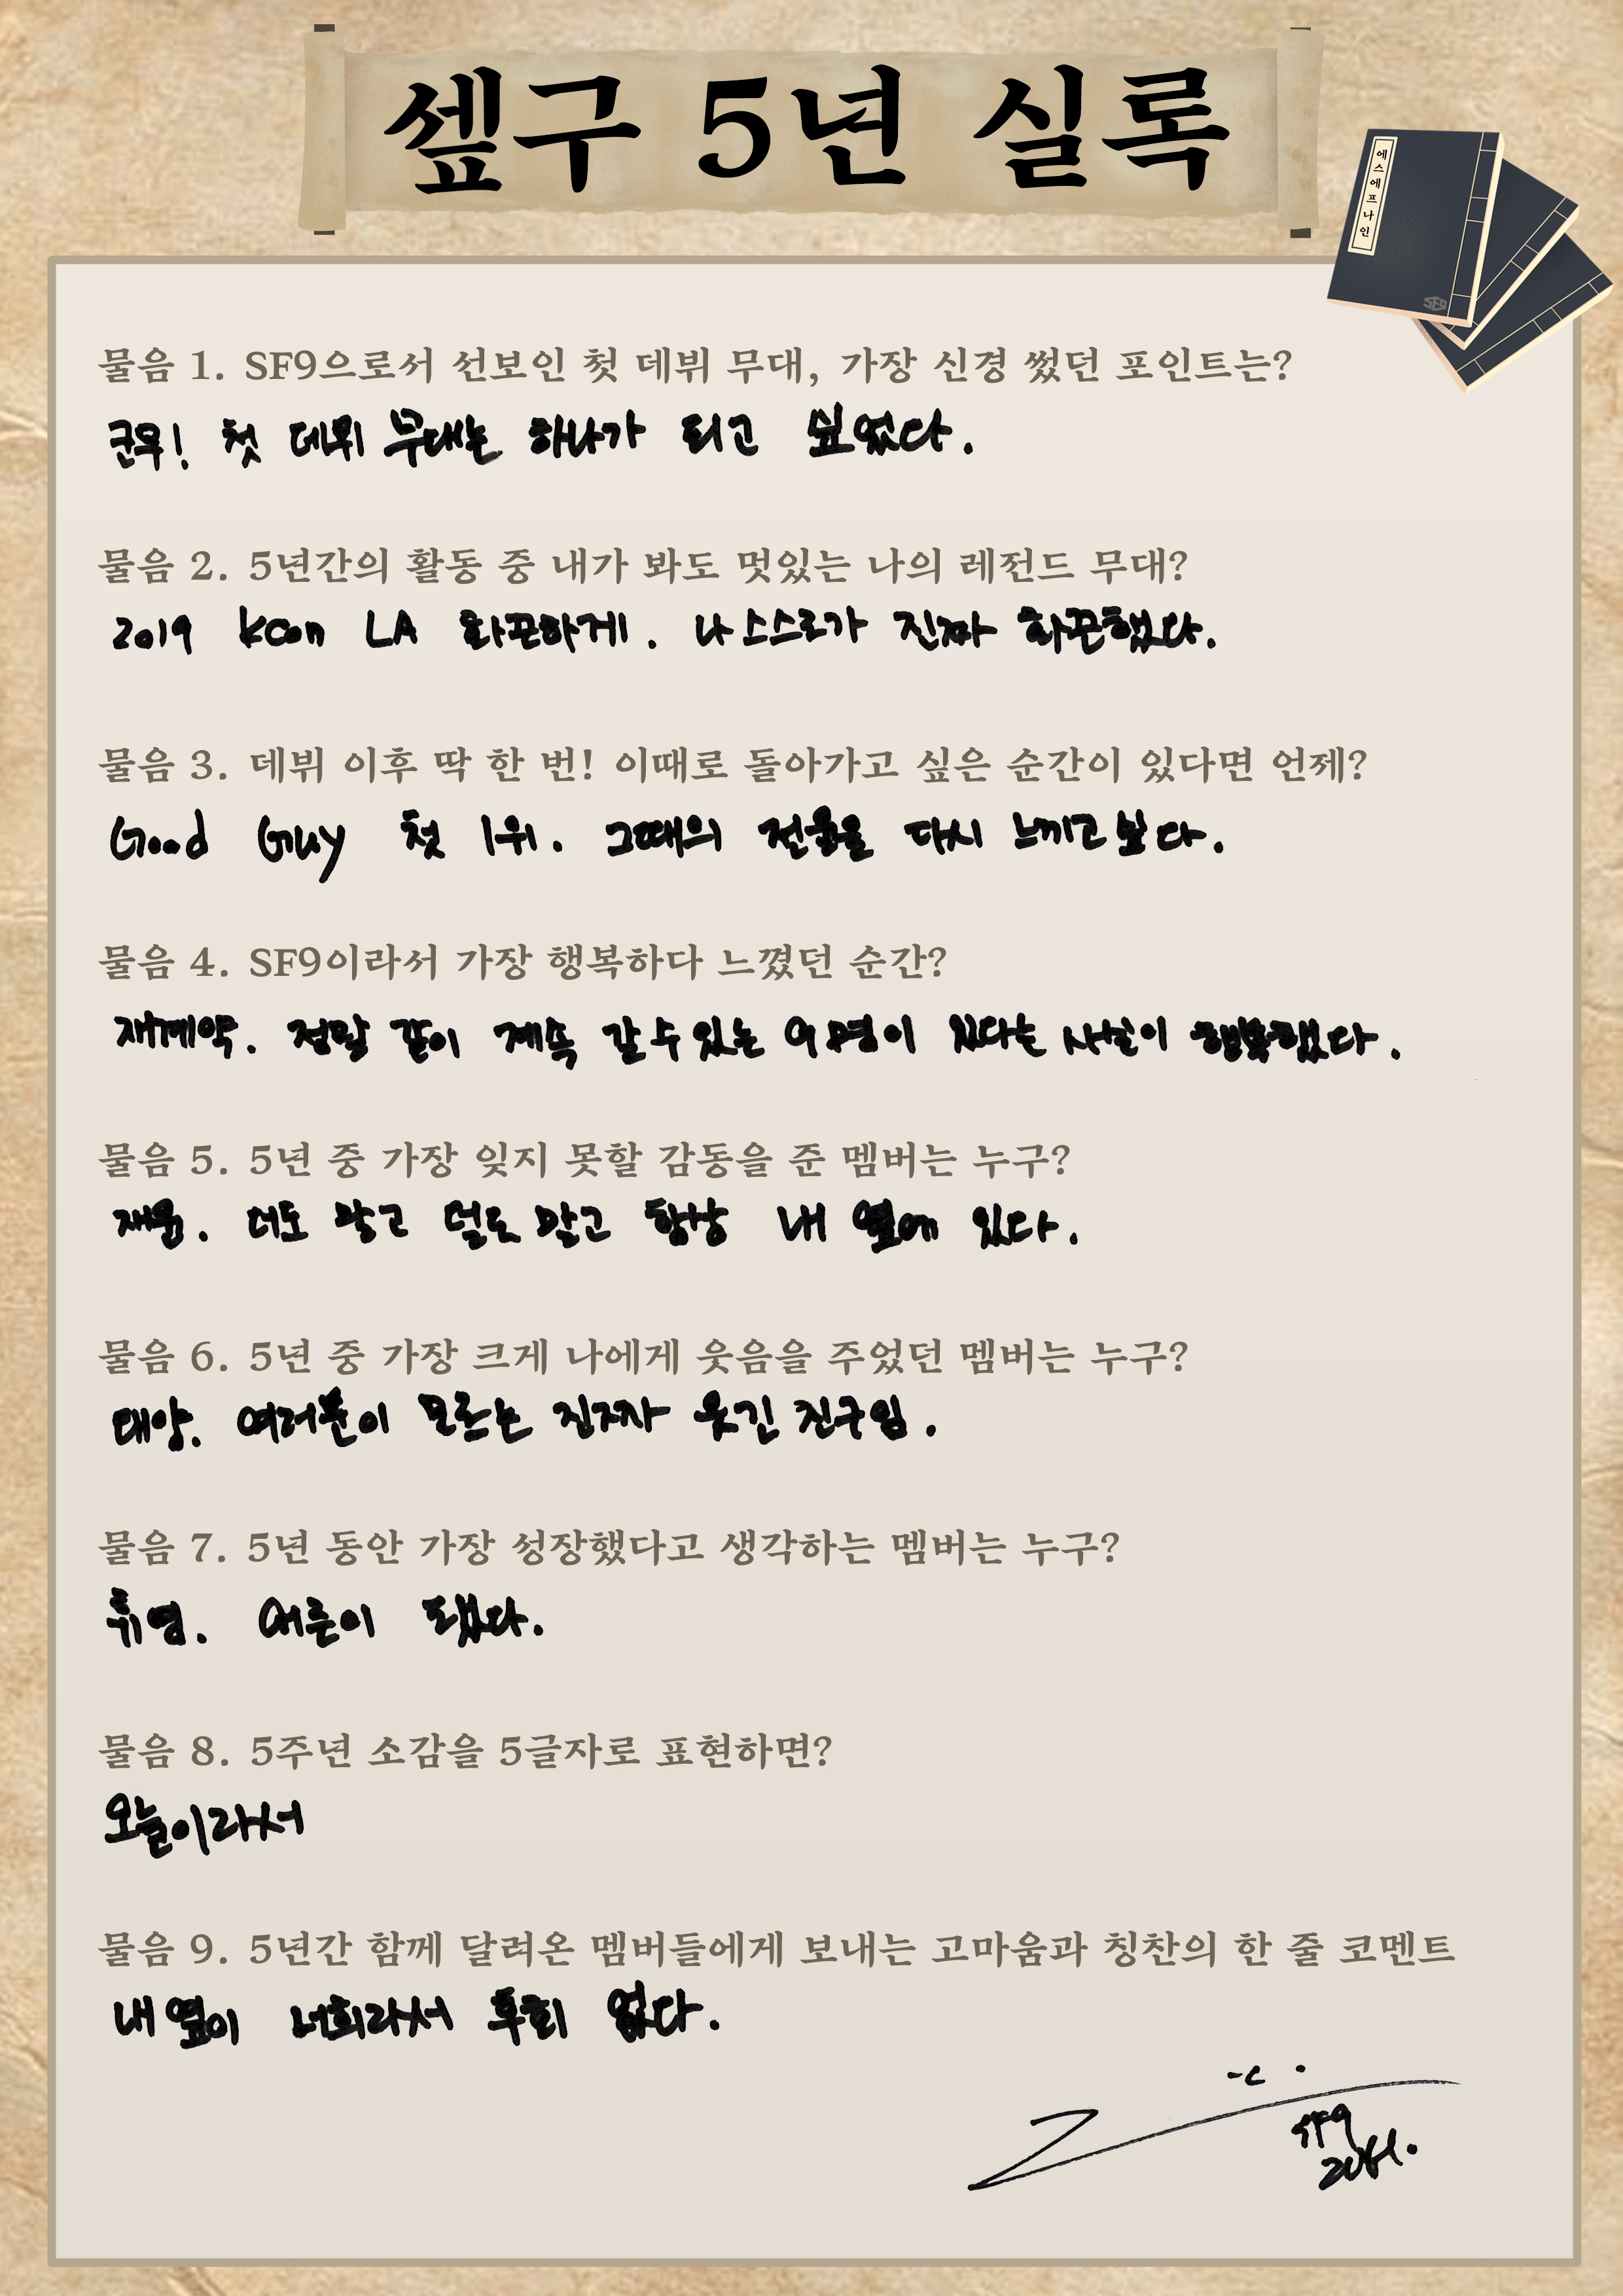 셒구 5년 실록
에스에프나인
SF9
물음 1. SF9으로서 선보인 첫 데뷔 무대, 가장 신경 썼던 포인트는?
군무! 첫 데뷔 무대는 하나가 되고 싶었다.
물음 2. 5년간의 활동 중 내가 봐도 멋있는 나의 레전드 무대?
2019 kcon LA 화끈하게. 나 스스로가 진짜 화끈했다.
물음 3. 데뷔 이후 딱 한 번! 이때로 돌아가고 싶은 순간이 있다면 언제?
Good Guy 첫 1위. 그때의 전율을 다시 느끼고 싶다.
물음 4. SF9이라서 가장 행복하다 느꼈던 순간?
재계약. 정말 같이 계속 갈 수 있는 9명이 있다는 사실이 행복했다.
물음 5. 5년 중 가장 잊지 못할 감동을 준 멤버는 누구?
재윤. 더도 말고 덜도 말고 항상 내 옆에 있다.
물음 6. 5년 중 가장 크게 나에게 웃음을 주었던 멤버는 누구?
태양. 여러분이 모르는 진짜 웃긴 친구임.
물음 7. 5년 동안 가장 성장했다고 생각하는 멤버는 누구?
휘영. 어른이 됐다.
물음 8. 5주년 소감을 5글자로 표현하면?
오늘이라서
물음 9. 5년간 함께 달려온 멤버들에게 보내는 고마움과 칭찬의 한 줄 코멘트
내 옆이 너희라서 후회 없다.
SF9